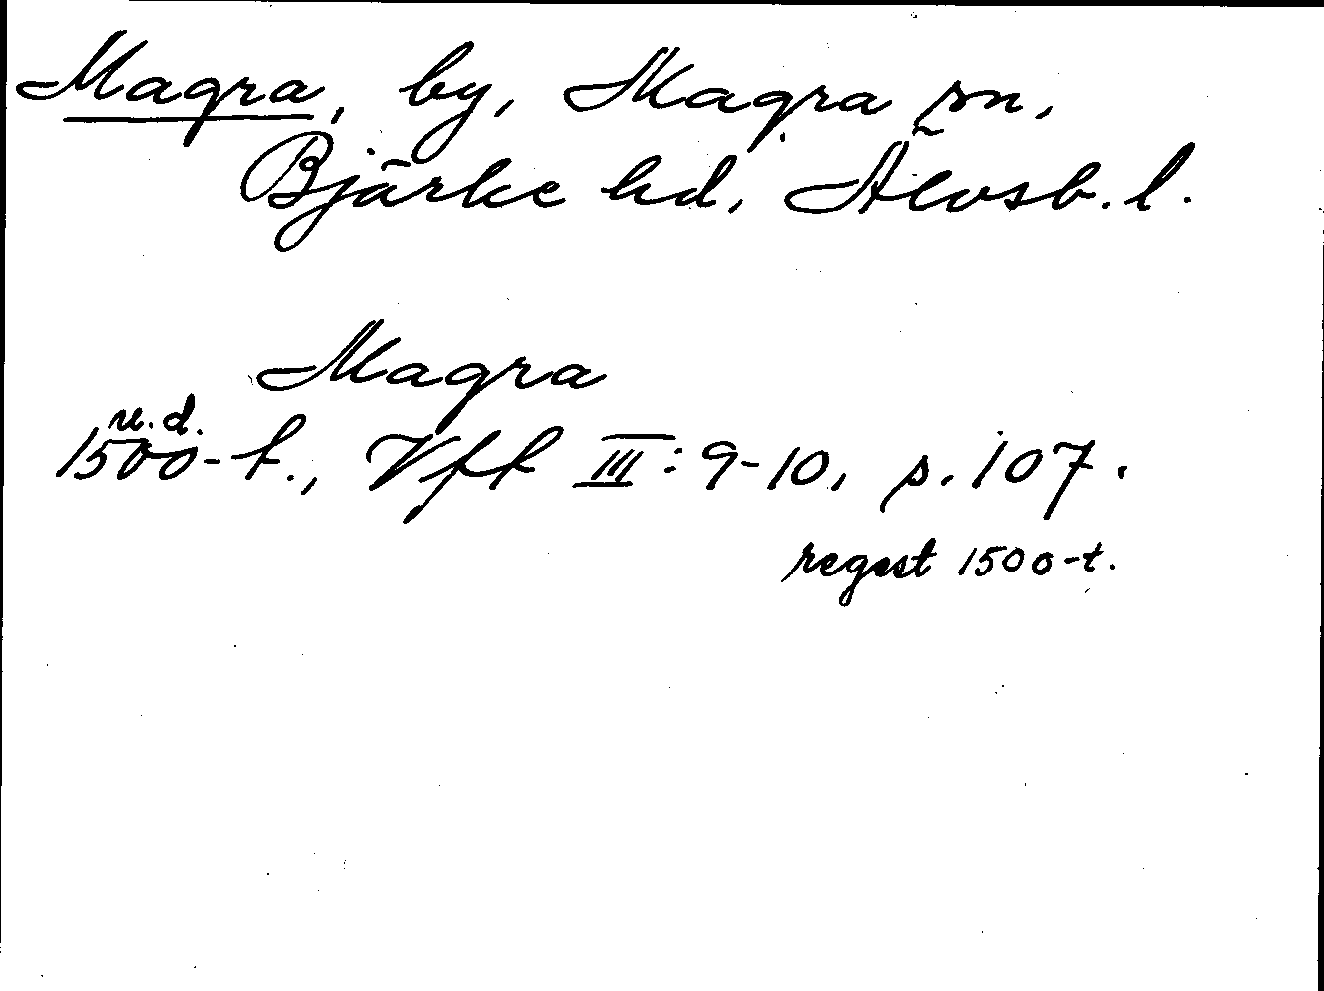 Magra, by, Magra sn,
Bjärke hd, Älvsb. l.
Magra
u.d.
1500-t., Vff III: 9-10, s. 107.
regest 1500-t.